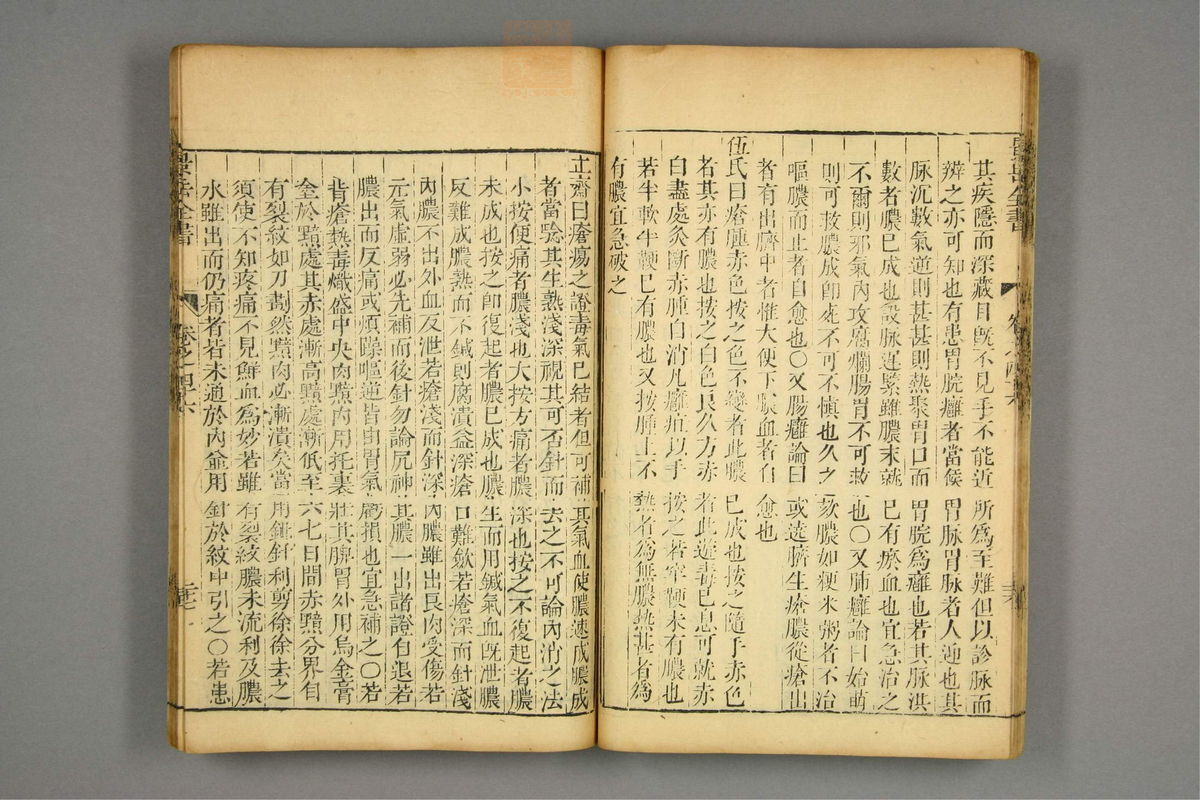 其疾隱而深藏目既不見手不能近所爲至難但以診脉而
辨之亦可知也有患胃脘癰者當候胃脉胃脉者人迎也其
脉沉數氣逆則甚甚則熱聚胃口而胃脘爲癰也若其脉洪
數者膿已成也設脉遲緊雖膿未就已有瘀血也宜急治之
不爾則邪氣內攻腐爛腸胃不可救也〇又肺癰論曰始萌
則可救膿成卽死不可不慎也久之咳膿如粳米粥者不治
嘔膿而止者自愈也〇又腸癰論曰或遶臍生瘡膿從瘡出
者有出臍中者惟大便下膿血者自愈也
伍氏曰瘡腫赤色按之色不變者此膿已成也按之隨手赤色
者其亦有膿也按之白色良久方赤者此遊毒已息可就赤
白盡處灸斷赤腫自消凡癰疽以手按之若牢鞕未有膿也
若半軟半鞕已有膿也又按腫上不熱者爲無膿熱甚者爲
有膿宜急破之
立齋曰瘡瘍之證毒氣已結者但可補其氣血使膿速成膿成
者當驗其生熟淺深視其可否針而去之不可論內消之法
小按便痛者膿淺也大按方痛者膿深也按之不復起者膿
未成也按之卽復起者膿已成也膿生而用鍼氣血旣泄膿
反難成膿熟而不鍼則腐潰益深瘡口難斂若瘡深而針淺
內膿不出外血反泄若瘡淺而針深內膿雖出良肉受傷若
元氣虛弱必先補而後針勿論尻神其膿一出諸證自退若
膿出而反痛或煩躁嘔逆皆由胃氣虧損也宜急補之〇若
背瘡熱毒熾盛中央肉黯內用托裏壯其脾胃外用烏金膏
塗於黯處其赤處漸高黯處漸低至六七日間赤黯分界自
有裂紋如刀劃然黯肉必漸潰矣當用鈹針利剪徐徐去之
須使不知疼痛不見鮮血爲妙若雖有裂紋膿未流利及膿
水雖出而仍痛者皆未通於內並用針於紋中引之〇若患
景岳全書
卷之四十六